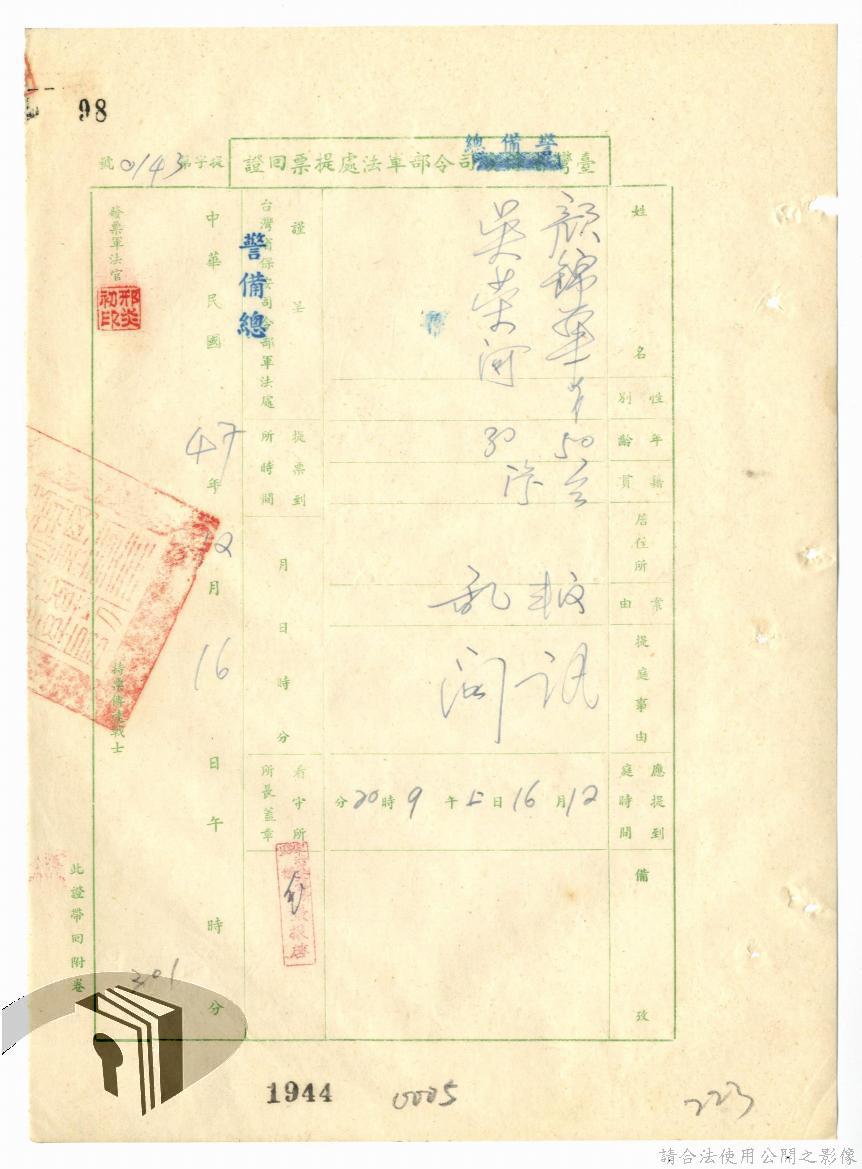 98
臺灣警備總司令部軍法處提票回證
提字第0143號
姓名
顏錦華
吳榮河
性別
男
年齡
50
30
籍貫
居住所
案由
叛亂
提庭事由
訊問
應提到庭時間
12月16日上午9時20分
備攷
謹呈
台灣省保安司令部軍法處
警備總
提票到所時間
月日時分
看守所所長蓋章
中華民國47年12月16日午時分
發票軍法官
邢炎初印
持票傳達戰士
此證帶回附卷
301
1944
0005
223
請合法使用公開之影像